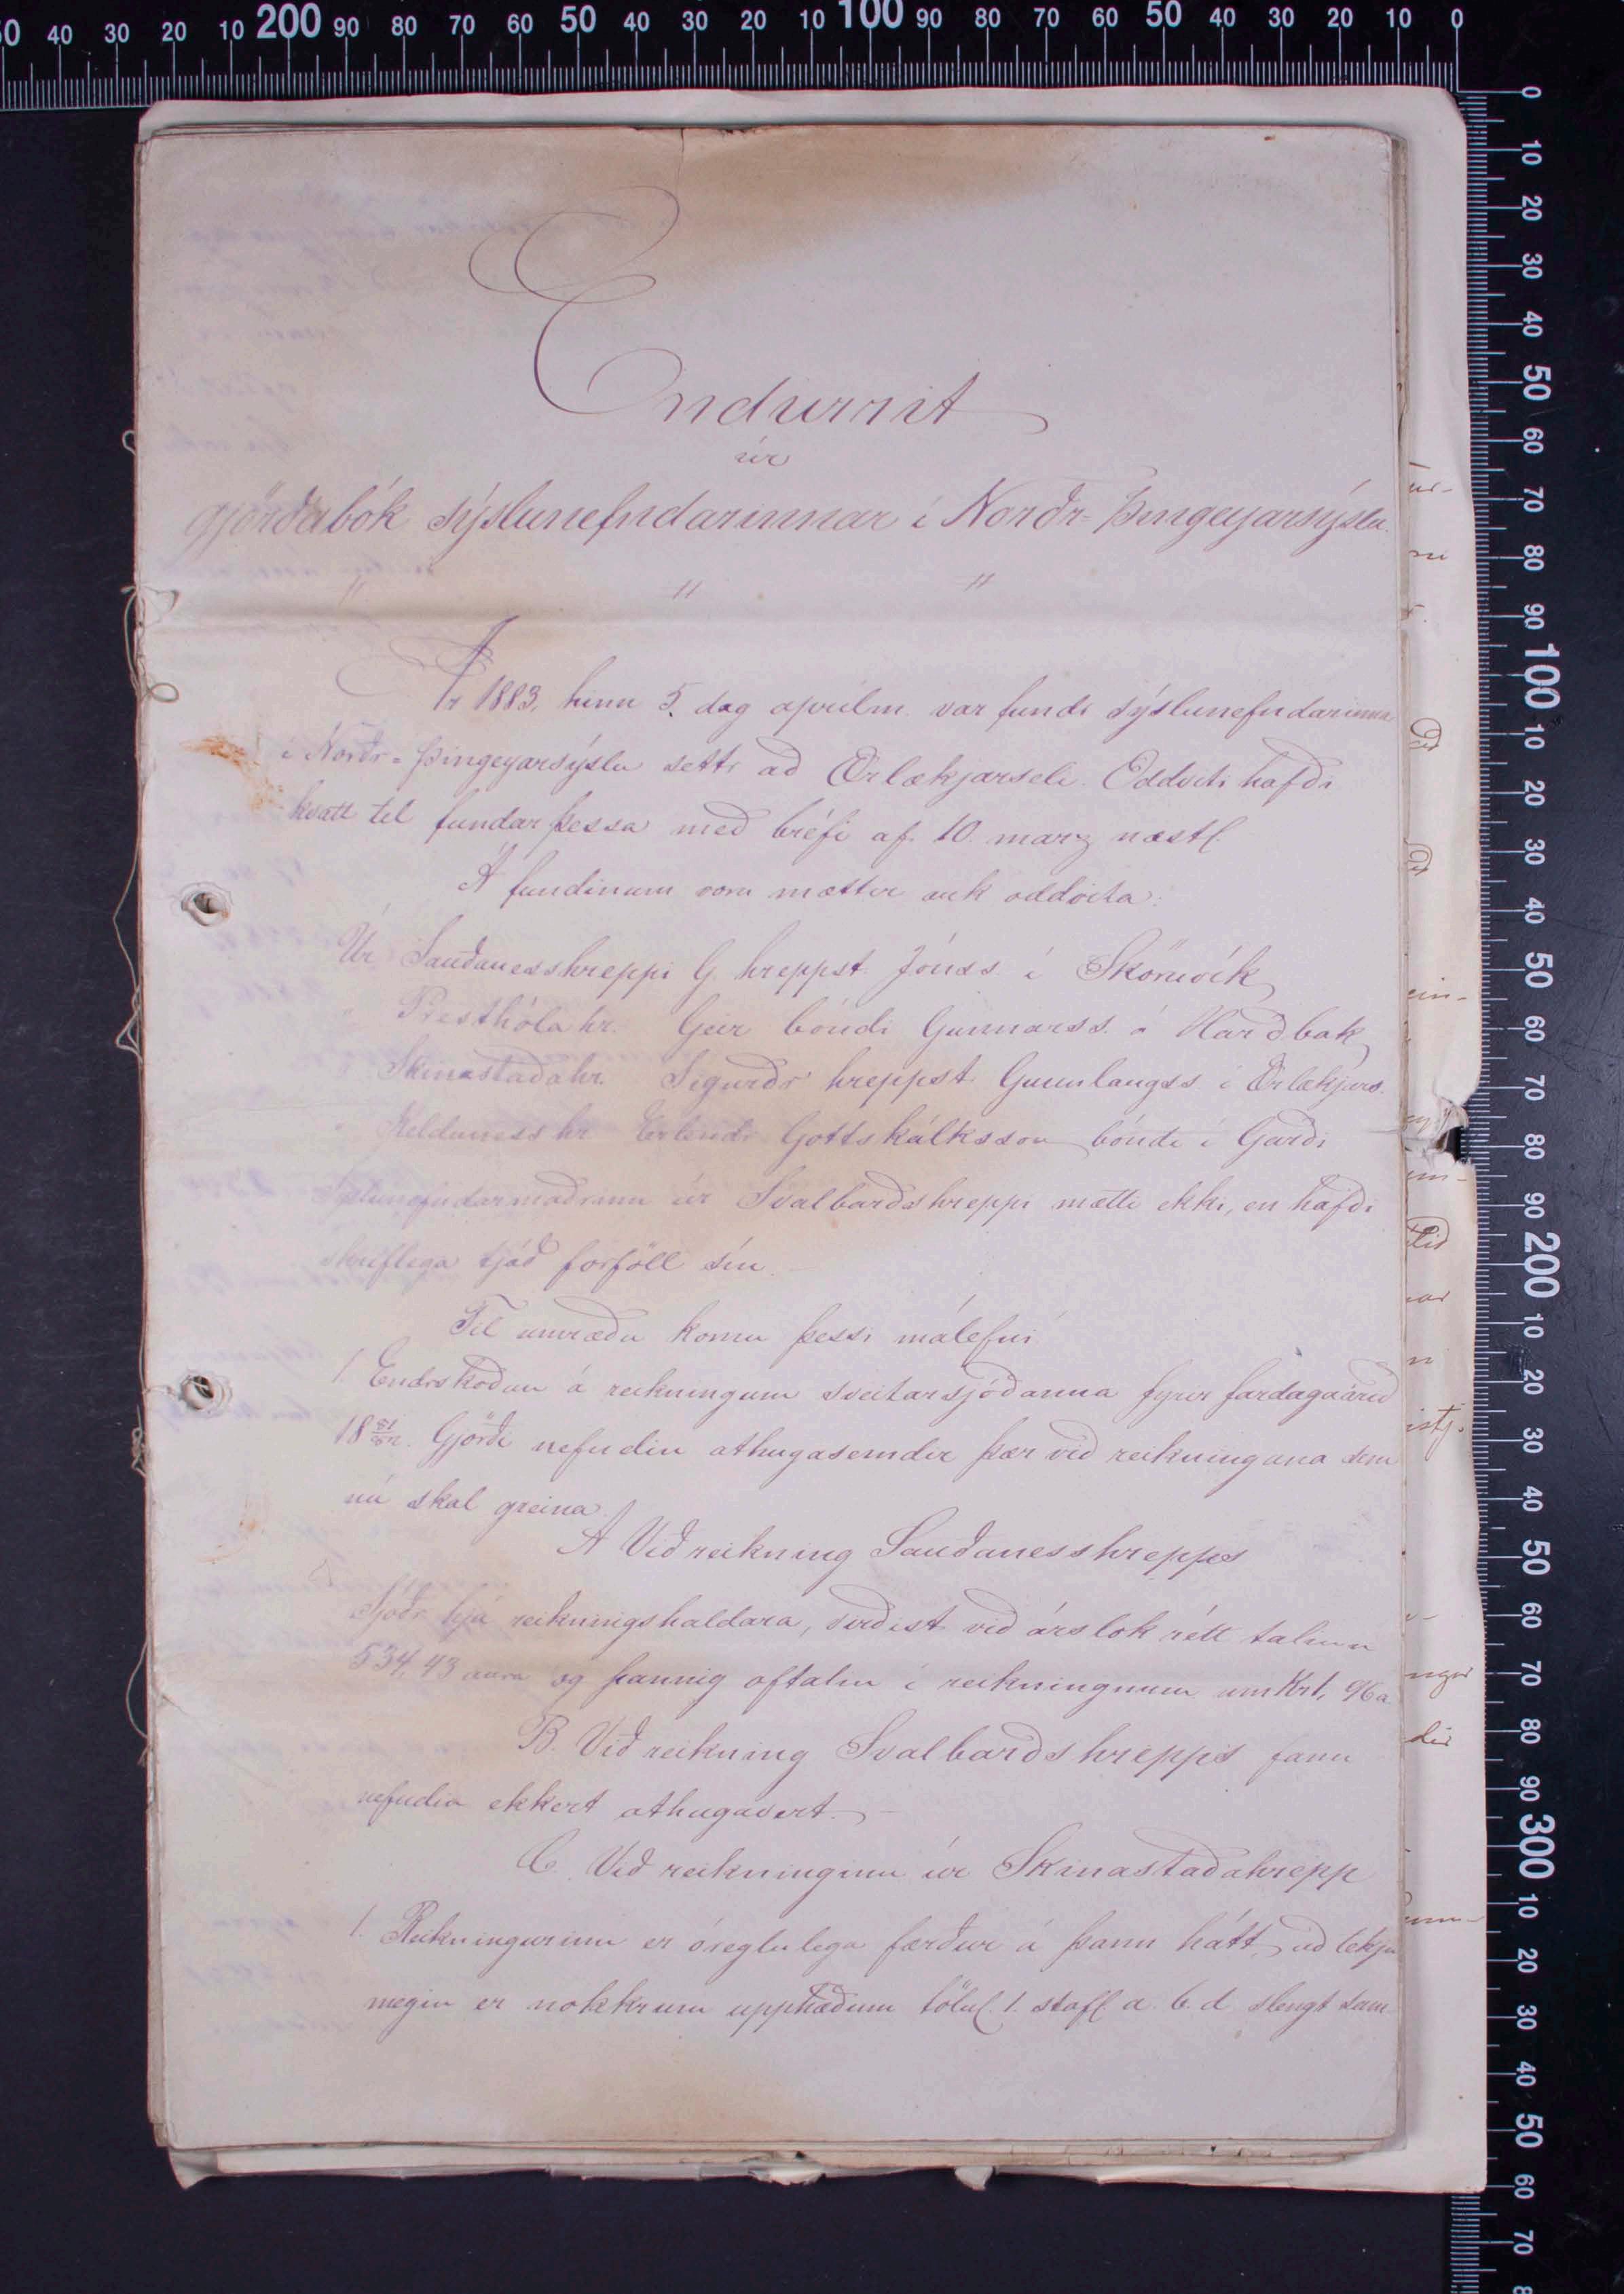 Endurrit
úr
gjörðabók sýslunefndarinnar í Norðr-Þingeyarsýslu.
" " "
Ár 1883, hinn 5. dag aprílm. var fundr sýslunefndarinnar
í Norðr-Þingeyarsýslu settr að Ærlækjarseli. Oddviti hafði
kvatt til fundar þessa með bréfi af 10. marz næstl.
Á fundinum voru mættir auk oddvita:
Úr Sauðanesshreppi G. hreppst. Jónss. í Skoruvík
" Presthólahr. Geir bóndi Gunnarss. á Harðbak
" Skinastaðahr. Sigurðr hreppst. Gunnlaugss. í Ærlækjars.
" Kelduness hr. Erlendr Gottskálksson bóndi í Garði
Sýslunefndarmaðrinn úr Svalbarðshreppi mætti ekki, en hafði
skriflega tjáð forföll sín. —
Til umræðu komu þessi málefni
1. Endrskoðun á reikningum sveitarsjóðanna fyrir fardagaárið
18 81/82. Gjörði nefndin athugasemdir þær við reikningana sem
nú skal greina.
A Við reikning Sauðanesshrepps
Sjóðr hjá reikningshaldara, virðist við árslok rétt talinn
534, 43 aura og þannig oftalin í reikningnum um Kr 1, 96 a
B. Við reikning Svalbarðshrepps fann
nefndin ekkert athugavert. —
C. Við reikninginn úr Skinastaðahrepp
1. Reikningurinn er óreglulega færður á þann hátt, að tekju
megin er nokkrum upphæðum tölul. 1. stafl. a. b. d slengt sam